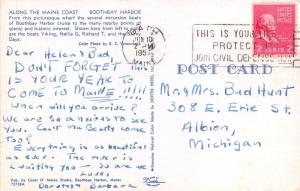 ALONG THE MAINE COAST BOOTHBAY HARBOR
From this picturesque wharf the several excursion boats
of Boothbay Harbor cruise to the nearby points of
scenic and historic interest. Shown have from left to
are the boats Viking, Nellie G, Richard T, and the
Days.
Color Photo by
Dear Helen & Bud
DON'T FORGET this
IS YOUR YEAR TO
COME TO MAINE!!!!
When will you arrive?
We are so anxious to see
you. Can't Ma Beatty come
too?
Everything is as beautiful
as ever. The river is
waiting you — So are
we. Love:
Dorothy Barbara
Pub. by Coast O' Maine Studio, Boothbay Harbor, Maine
POST CARD
JUN 10
PM
195
MAINE
THIS IS YOUR
PROTEC
JOIN CIVIL DEFENSE
2 CENTS 2
Mr. & Mrs. Bud Hunt
308 E. Erie St.
Albion,
Michigan